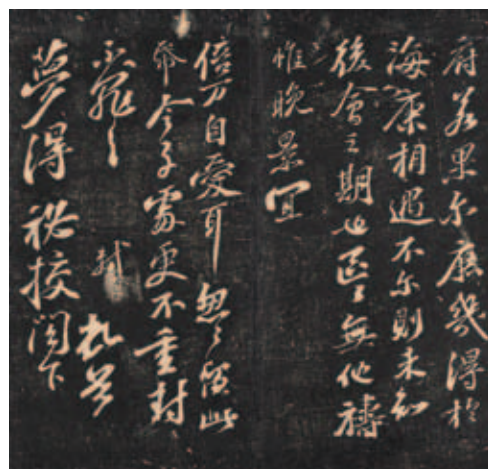 府若果尔庶幾得於
海康相遇不尔則未知
後會之期也區〻無他禱
惟晚景宜
倍万自愛耳怱〻留此
帋令子處更不重封
不罪〻 軾頓首
夢得秘校閣下